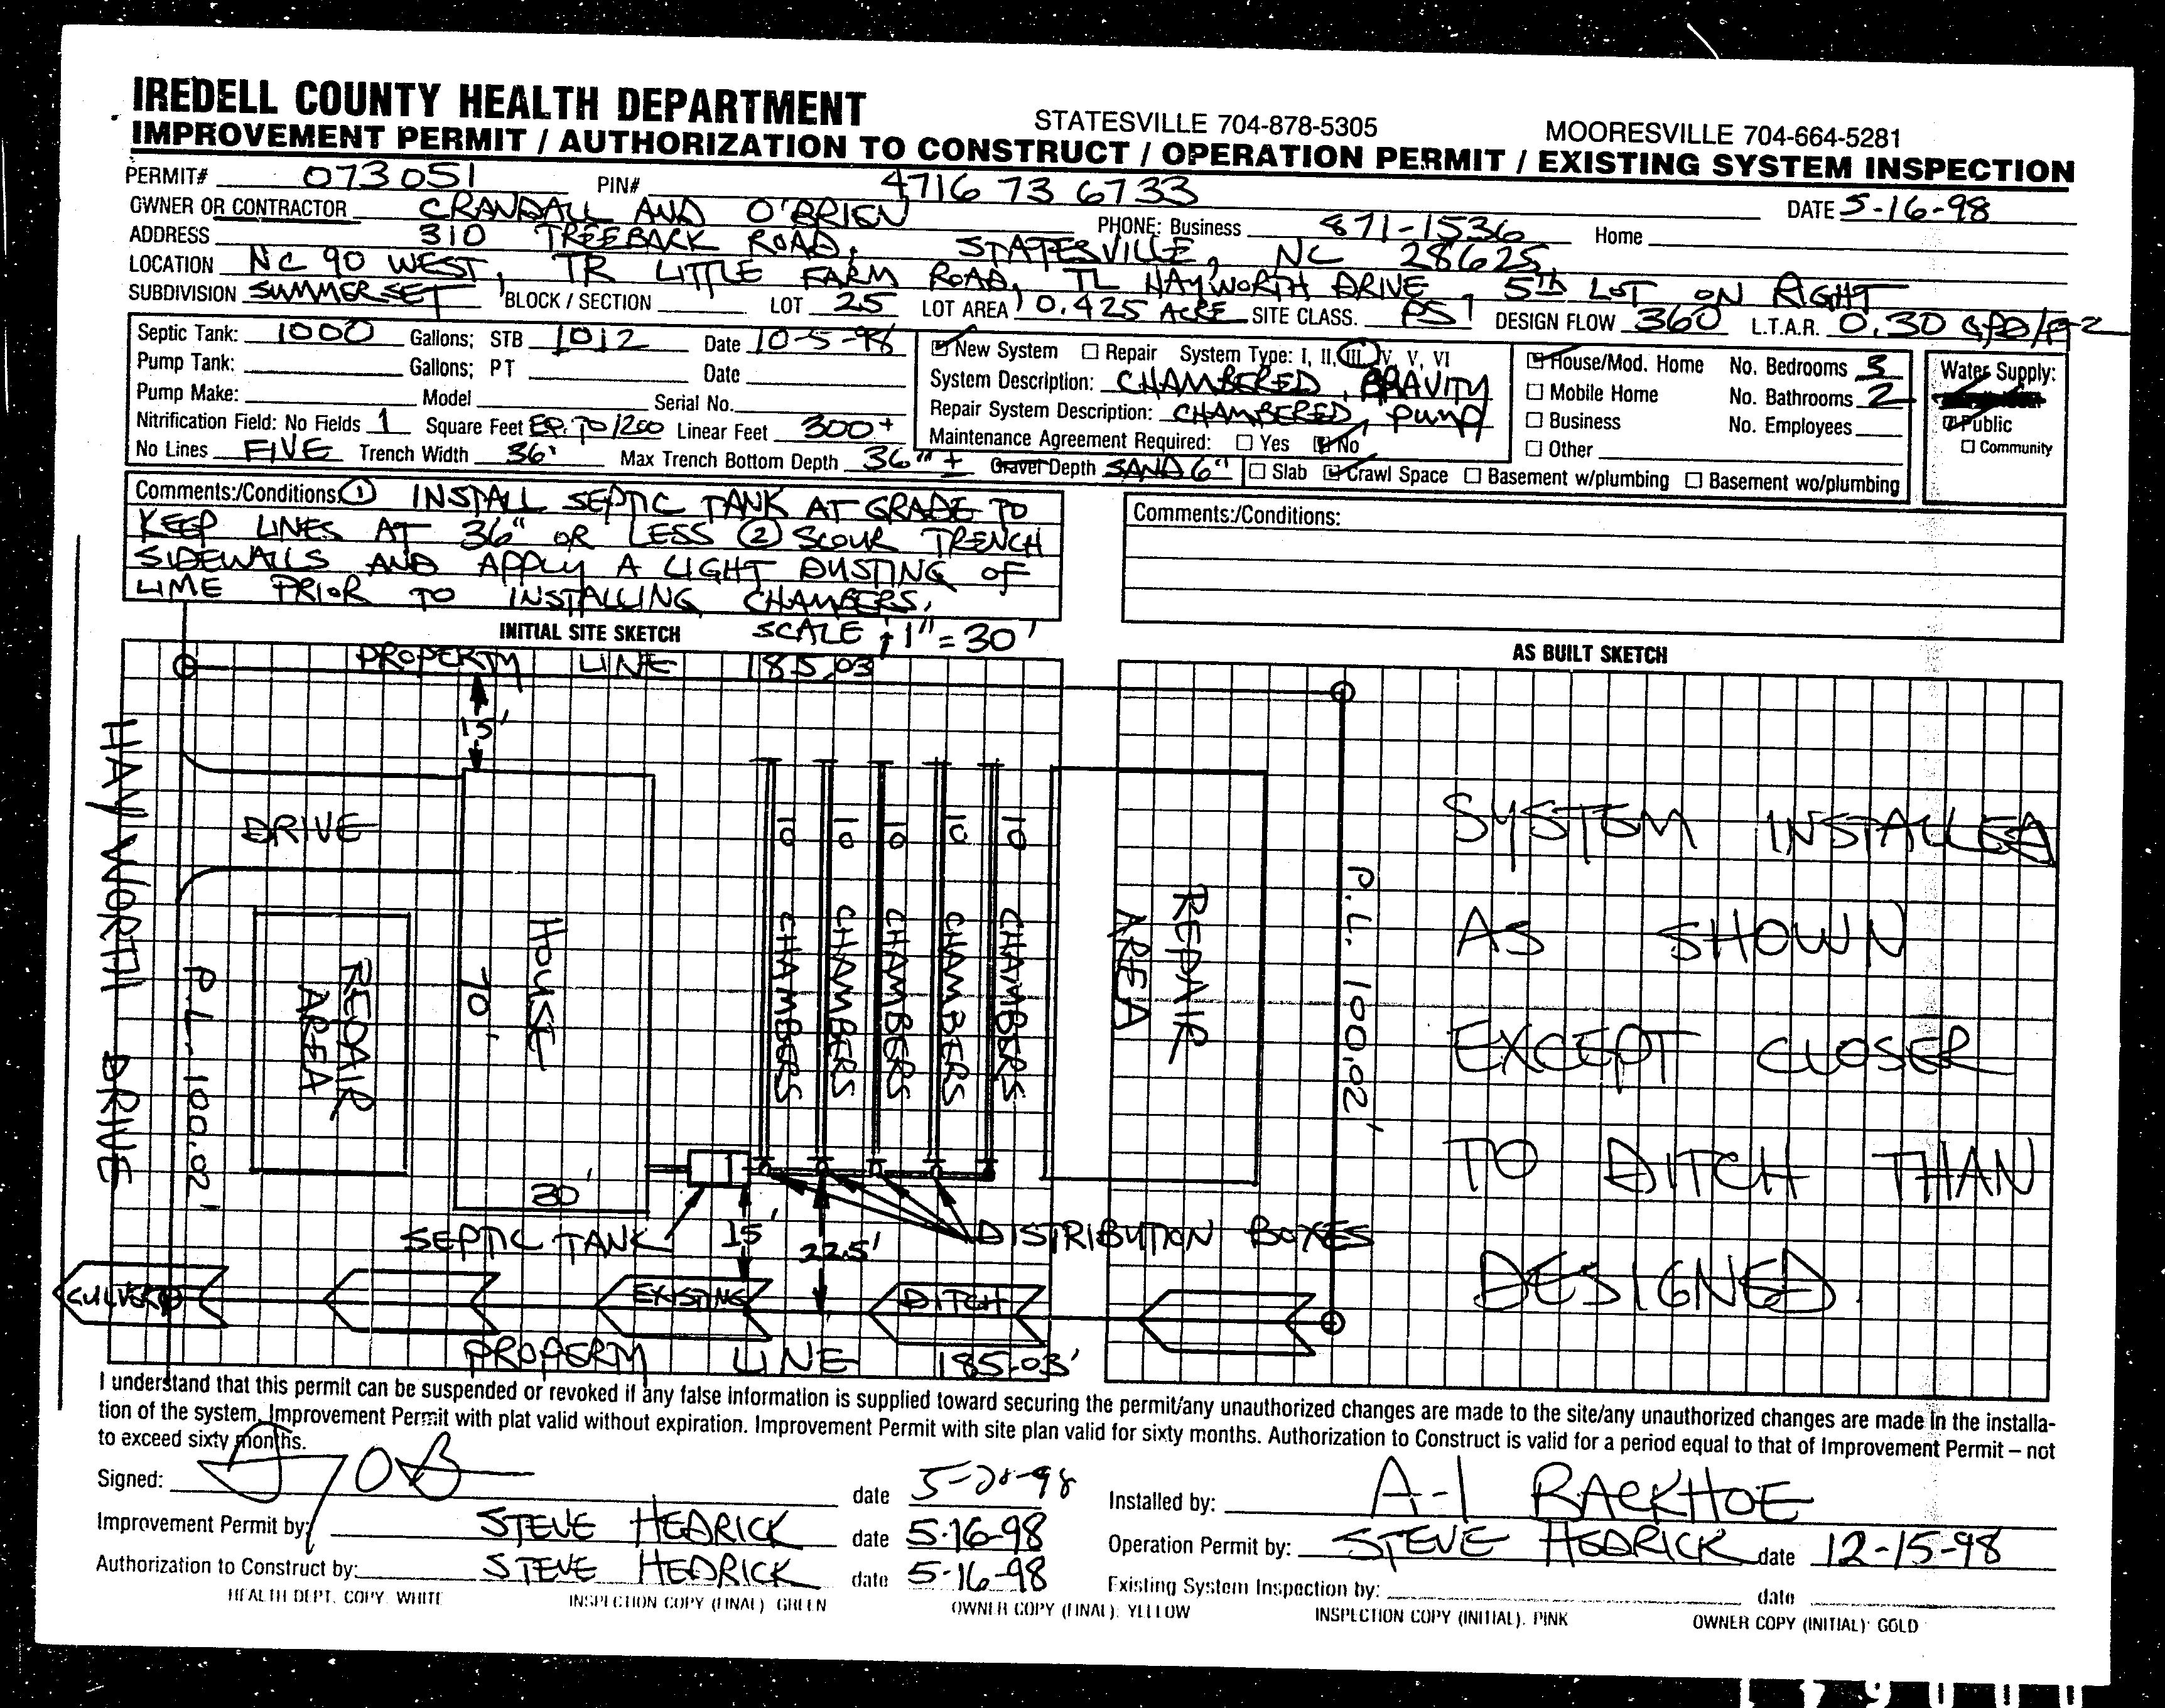 IREDELL COUNTY HEALTH DEPARTMENT STATESVILLE 704-878-5305 MOORESVILLE 704-664-5281
IMPROVEMENT PERMIT / AUTHORIZATION TO CONSTRUCT / OPERATION PERMIT / EXISTING SYSTEM INSPECTION
PERMIT# 073051 PIN# 4716 73 6733 DATE 5-16-98
OWNER OR CONTRACTOR CRANDALL AND O'BRIEN PHONE: Business 871-1536 Home
ADDRESS 310 TREEBARK ROAD, STATESVILLE, NC 28625
LOCATION NC 90 WEST, TR LITTLE FARM ROAD, TL HAYWORTH DRIVE, 5TH LOT ON RIGHT
SUBDIVISION SUMMERSET BLOCK / SECTION LOT 25 LOT AREA 0.425 ACRE SITE CLASS. PS DESIGN FLOW 360 L.T.A.R. 0.30
Septic Tank: 1000 Gallons; STB 1012 Date 10-5-98
Pump Tank: Gallons; PT Date
Pump Make: Model Serial No.
Nitrification Field: No Fields 1 Square Feet EQ. TO 1200 Linear Feet 300+
No Lines FIVE Trench Width 36" Max Trench Bottom Depth 36"± Gravel Depth SAND 6"
New System Repair System Type: I, II, III, IV, V, VI
System Description: CHAMBERED, GRAVITY
Repair System Description: CHAMBERED, PUMP
Maintenance Agreement Required: Yes No
House/Mod. Home No. Bedrooms 3
Mobile Home No. Bathrooms 2
Business No. Employees
Other
Slab Crawl Space Basement w/plumbing Basement wo/plumbing
Water Supply:
Public
Community
Comments:/Conditions: ① INSTALL SEPTIC TANK AT GRADE TO
KEEP LINES AT 36" OR LESS ② SCOUR TRENCH
SIDEWALLS AND APPLY A LIGHT DUSTING OF
LIME PRIOR TO INSTALLING CHAMBERS.
Comments:/Conditions:
INITIAL SITE SKETCH SCALE: 1" = 30'
AS BUILT SKETCH
PROPERTY LINE 185.03'
15'
HAYWORTH DRIVE
DRIVE
P.L. 100.02'
REPAIR AREA
HOUSE
70'
30'
10 CHAMBERS
10 CHAMBERS
10 CHAMBERS
10 CHAMBERS
10 CHAMBERS
REPAIR AREA
P.L. 100.02'
SYSTEM INSTALLED
AS SHOWN
EXCEPT CLOSER
TO DITCH THAN
DESIGNED.
SEPTIC TANK 15' 22.5' DISTRIBUTION BOXES
CULVERT EXISTING DITCH
PROPERTY LINE 185.03'
I understand that this permit can be suspended or revoked if any false information is supplied toward securing the permit/any unauthorized changes are made to the site/any unauthorized changes are made in the installa-
tion of the system. Improvement Permit with plat valid without expiration. Improvement Permit with site plan valid for sixty months. Authorization to Construct is valid for a period equal to that of Improvement Permit – not
to exceed sixty months.
Signed: date 5-20-98
Improvement Permit by: STEVE HEDRICK date 5-16-98
Authorization to Construct by: STEVE HEDRICK date 5-16-98
Installed by: A-1 BACKHOE
Operation Permit by: STEVE HEDRICK date 12-15-98
Existing System Inspection by: date
HEALTH DEPT. COPY: WHITE INSPECTION COPY (FINAL): GREEN OWNER COPY (FINAL): YELLOW INSPECTION COPY (INITIAL): PINK OWNER COPY (INITIAL): GOLD